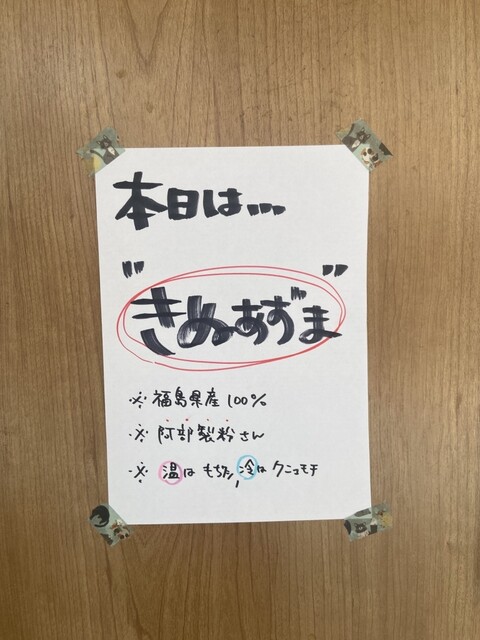 本日は...
"きぬあずま"
※福島県産100%
※阿部製粉さん
※温はもちろん、冷はクニュモチ